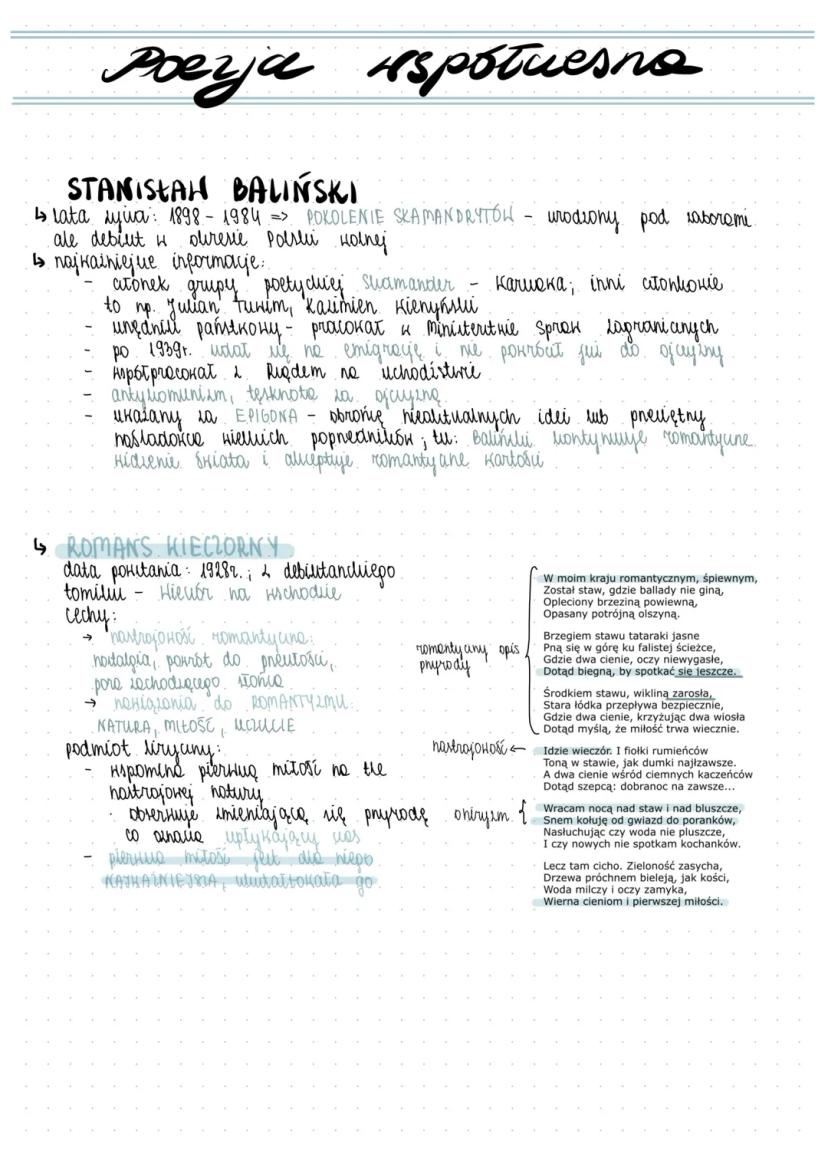 Poezja współczesna
STANISŁAW BALIŃSKI
↳ lata życia: 1898 - 1984 => POKOLENIE SKAMANDRYTÓW - urodzony pod zaborami
ale debiut w okresie Polski wolnej
↳ najważniejsze informacje:
- członek grupy poetyckiej Skamander - Warszawa; inni członkowie
to np. Julian Tuwim, Kazimierz Wierzyński
- urzędnik państwowy - pracował w Ministerstwie Spraw Zagranicznych
- po 1939r. udał się na emigrację i nie powrócił już do ojczyzny
- współpracował z Rządem na uchodźstwie
- antykomunizm, tęsknota za ojczyzną
- uważany za EPIGONA - obrońcę nieaktualnych idei lub przeciętny
naśladowca wielkich poprzedników; tu: Baliński kontynuuje romantyczne
widzenie świata i akceptuje romantyczne wartości
↳ ROMANS WIECZORNY
data powstania: 1928r.; z debiutanckiego
tomiku - Wieczór na wschodzie
cechy:
→ nastrojowość romantyczna:
nostalgia, powrót do przeszłości,
pora zachodzącego słońca
→ nawiązania do ROMANTYZMU:
NATURA, MIŁOŚĆ, UCZUCIE
podmiot liryczny:
- wspomina pierwszą miłość na tle
nastrojowej natury
· obserwuje zmieniającą się przyrodę
co oznacza upływający czas
- pierwsza miłość jest dla niego
NAJWAŻNIEJSZA, ukształtowała go
romantyczny opis
przyrody
W moim kraju romantycznym, śpiewnym,
Został staw, gdzie ballady nie giną,
Opleciony brzeziną powiewną,
Opasany potrójną olszyną.
Brzegiem stawu tataraki jasne
Pną się w górę ku falistej ścieżce,
Gdzie dwa cienie, oczy niewygasłe,
Dotąd biegną, by spotkać się jeszcze.
Środkiem stawu, wikliną zarosła,
Stara łódka przepływa bezpiecznie,
Gdzie dwa cienie, krzyżując dwa wiosła
Dotąd myślą, że miłość trwa wiecznie.
nastrojowość ←
Idzie wieczór. I fiołki rumieńców
Toną w stawie, jak dumki najłzawsze.
A dwa cienie wśród ciemnych kaczeńców
Dotąd szepcą: dobranoc na zawsze...
oniryzm {
Wracam nocą nad staw i nad bluszcze,
Snem kołuję od gwiazd do poranków,
Nasłuchując czy woda nie pluszcze,
I czy nowych nie spotkam kochanków.
Lecz tam cicho. Zieloność zasycha,
Drzewa próchnem bieleją, jak kości,
Woda milczy i oczy zamyka,
Wierna cieniom i pierwszej miłości.